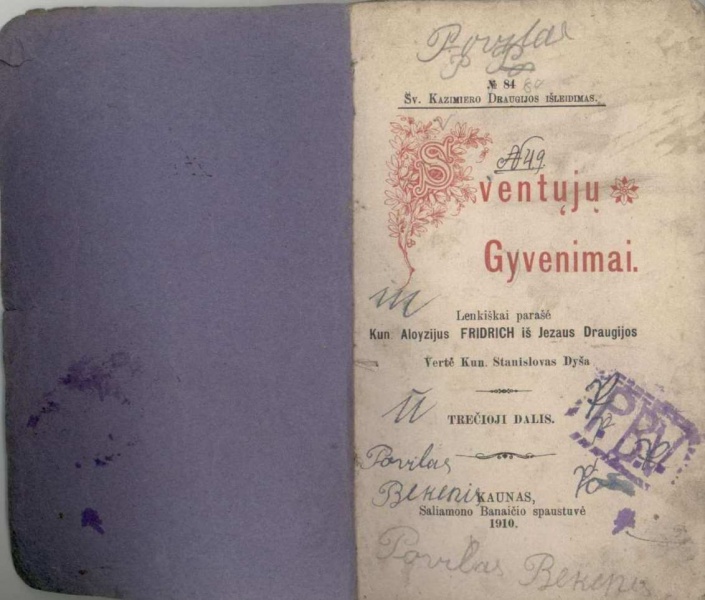 Povylas
P
№ 84
Šv. Kazimiero Draugijos išleidimas.
N49
Šventųjų
Gyvenimai.
III
Lenkiškai parašė
Kun. Aloyzijus FRIDRICH iš Jezaus Draugijos
Vertė Kun. Stanislovas Dyša
II
TREČIOJI DALIS.
Povilas
KAUNAS,
Saliamono Banaičio spaustuvė
1910.
Povilas